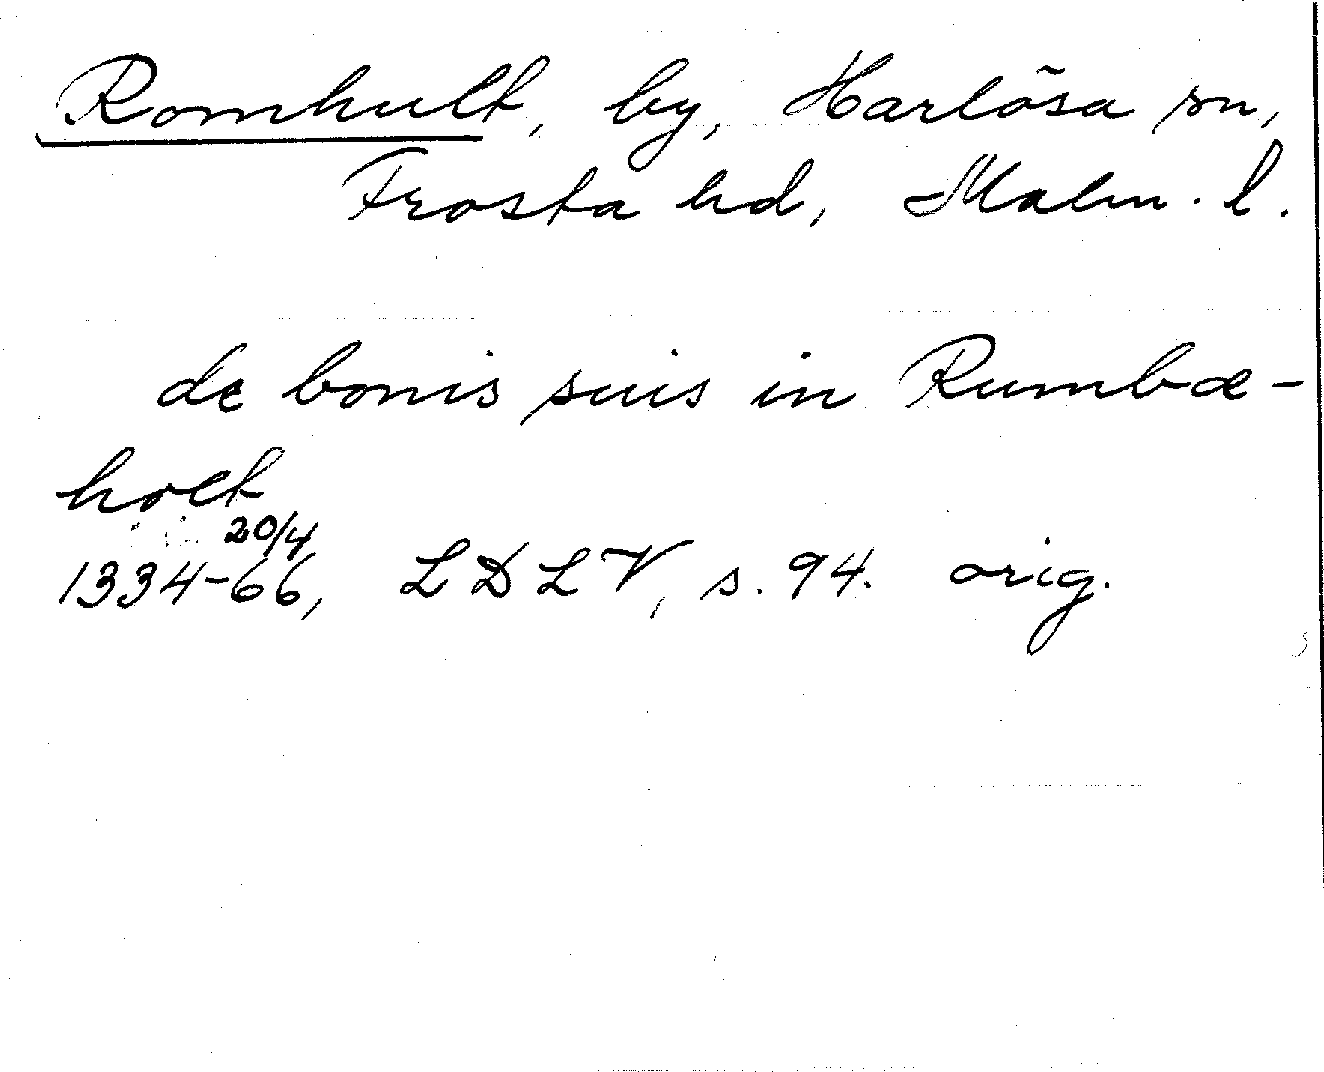 Romhult, by, Harlösa sn,
Frosta hd, Malm. l.
de bonis suis in Rumbæ-
holt
20/4
1334-66, LDLV, s. 94. orig.